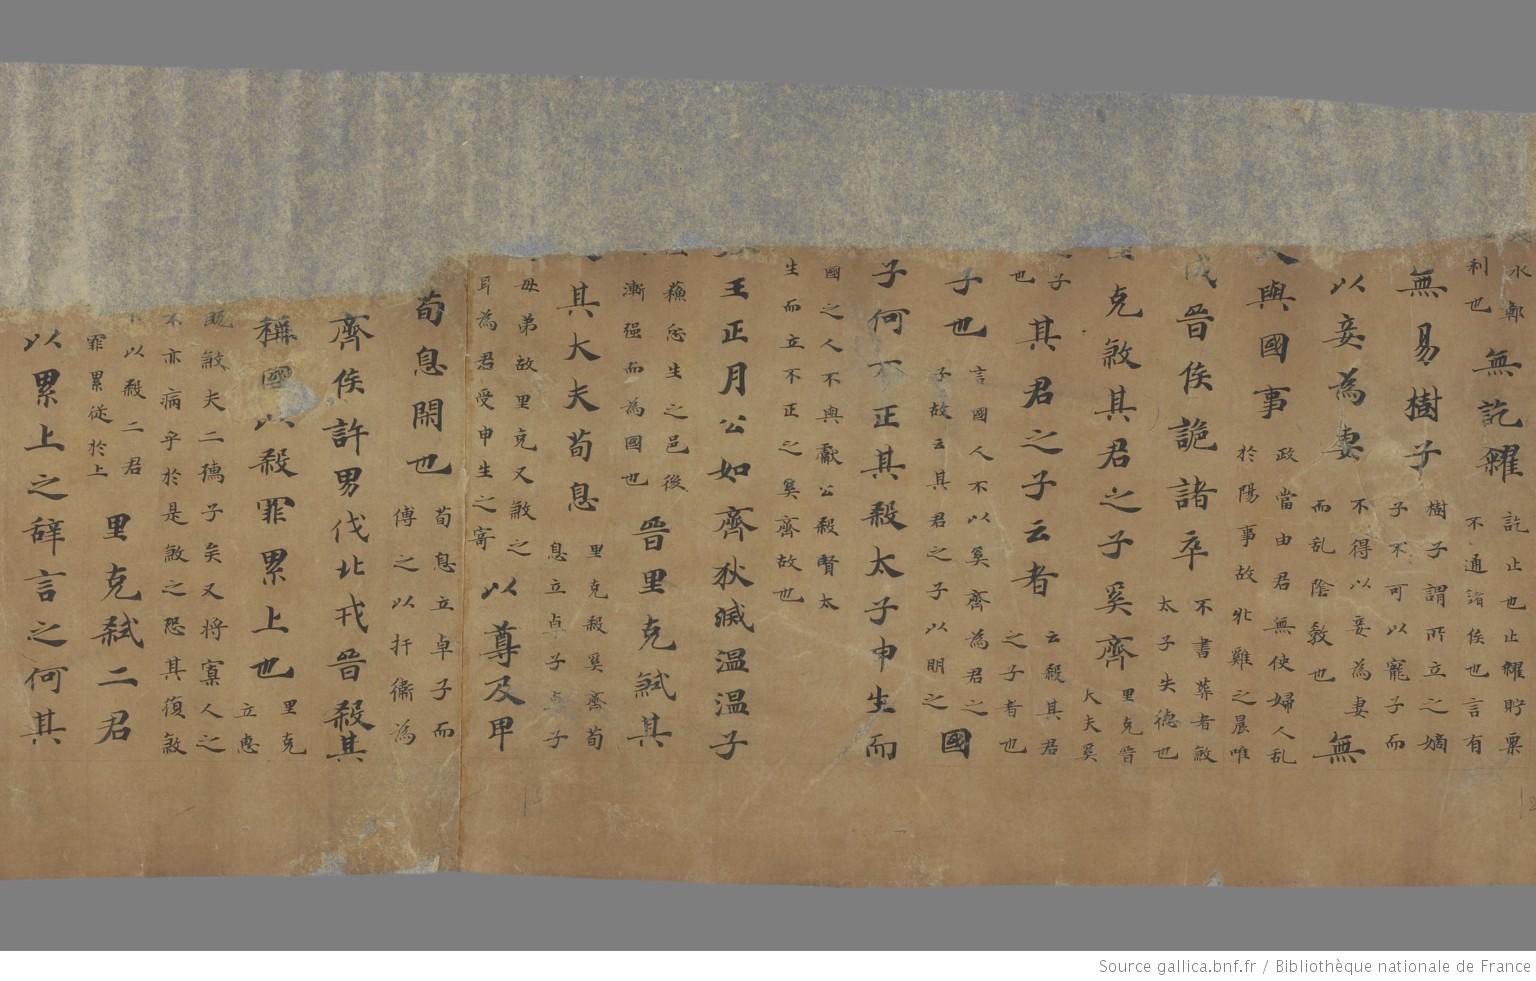 水鄣無訖糴訖止也止糴貯粟
利也不通諸侯也言有
無易樹子樹子謂所立之嫡
子不可以寵子而
以妾為妻不得以妾為妻無
而乱陰敎也
與國事政當由君無使婦人乱
於陽事故牝雞之晨唯
晉侯詭諸卒不書葬者煞
太子失德也
克煞其君之子奚齊里克晉
大夫奚
子
也其君之子云者云殺其君
之子者也
子也言國人不以奚齊為君之國
子故云其君之子以明之
子何不正其殺太子申生而
國之人不與獻公殺賢太
生而立不正之奚齊故也
王正月公如齊狄滅温温子
蘇忿生之邑後晉里克弒其
漸强而為國也
其大夫荀息里克殺奚齊荀
息立卓子卓子
母弟故里克又煞之以尊及卑
耳為君受申生之寄
荀息閑也荀息立卓子而
傅之以扞衞為
齊侯許男伐北戎晉殺其
稱國以殺罪累上也里克
立惠
既煞夫二孺子矣又将寡人之
不亦病乎於是煞之恐其復煞
以殺二君里克弒二君
罪累從於上
以累上之辞言之何其
Source gallica.bnf.fr / Bibliothèque nationale de France